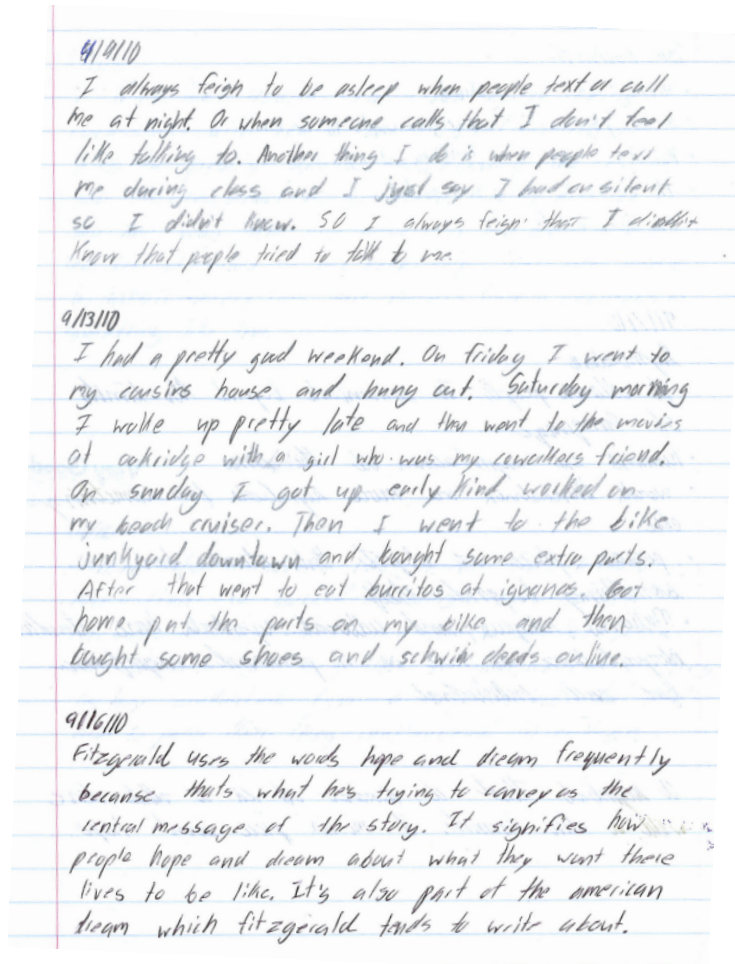 9/9/10
I always feign to be asleep when people text or call
me at night. Or when someone calls that I don't feel
like talking to. Another thing I do is when people text
me during class and I just say I had on silent
so I didn't know. SO I always feign that I didn't
know that people tried to talk to me.
9/13/10
I had a pretty good weekend. On friday I went to
my cousins house and hung out. Saturday morning
I woke up pretty late and then went to the movies
at oakridge with a girl who was my coworkers friend.
On sunday I got up early and worked on
my beach cruiser. Then I went to the bike
junkyard downtown and bought some extra parts.
After that went to eat burritos at iguanas. Got
home put the parts on my bike and then
bought some shoes and online.
9/16/10
Fitzgerald uses the words hope and dream frequently
because thats what he's trying to convey as the
central message of the story. It signifies how
people hope and dream about what they want there
lives to be like. It's also part of the american
dream which fitzgerald tends to write about.